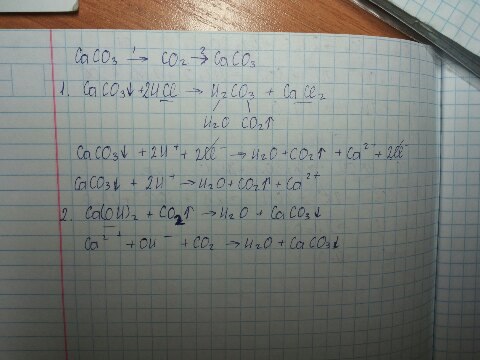 CaCO₃ →¹ CO₂ →² CaCO₃
1. CaCO₃↓ + 2HCl → H₂CO₃ + CaCl₂
H₂O CO₂↑
CaCO₃↓ + 2H⁺ + 2Cl⁻ → H₂O + CO₂↑ + Ca²⁺ + 2Cl⁻
CaCO₃↓ + 2H⁺ → H₂O + CO₂↑ + Ca²⁺
2. Ca(OH)₂ + CO₂↑ → H₂O + CaCO₃↓
Ca²⁺ + OH⁻ + CO₂ → H₂O + CaCO₃↓